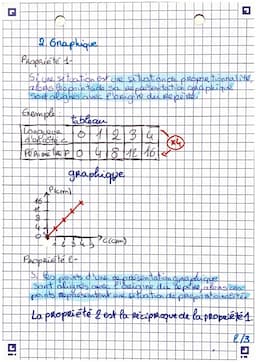 2. Graphique
Propriété 1-
Si une situation est une situation de proportionnalité,
alors les points de sa représentation graphique
sont alignés avec l'origine du repère.
Exemple tableau
Longueur du côté C 0 1 2 3 4
Périmètre P 0 4 8 12 16
×4
graphique
P(cm)
16
12
8
4
0
1 2 3 4 5 C(cm)
Propriété 2-
Si les points d'une représentation graphique
sont alignés avec l'origine du repère, alors ces
points représentent une situation de proportionnalité
La propriété 2 est la réciproque de la propriété 1
2/3